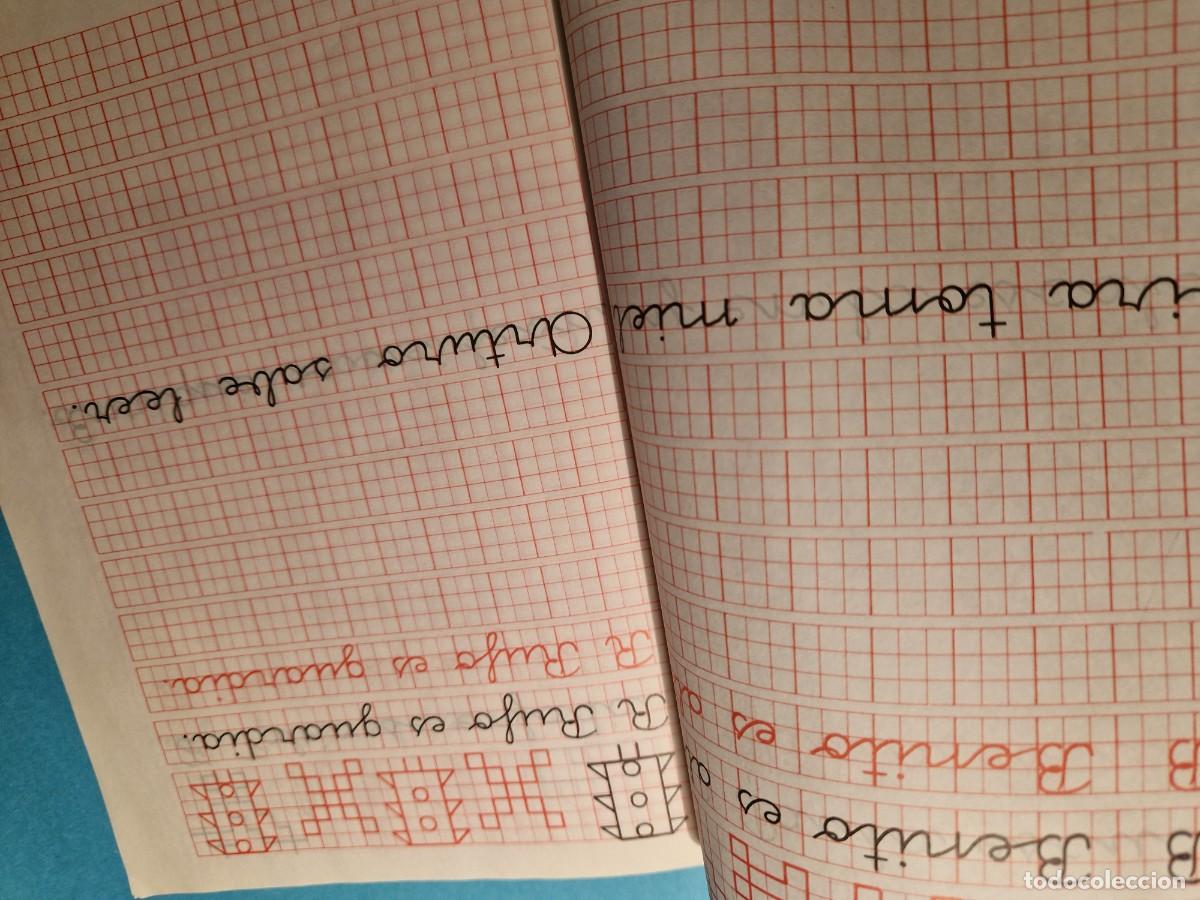 B Benito es a
B Benito es a
ira toma miel
R Rufo es guardia.
R Rufo es guardia.
Arturo sabe leer.
todocoleccion